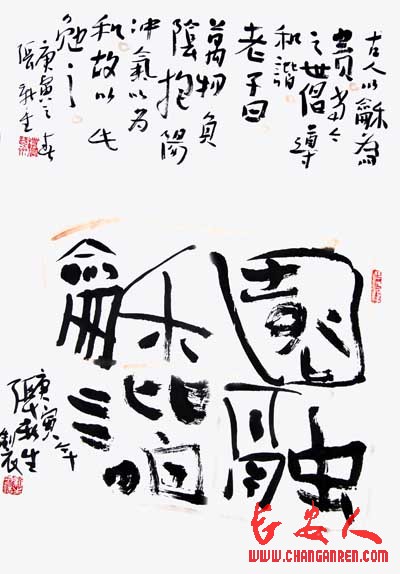 古人以龢為
貴當今
之世倡導
和諧
老子曰
萬物負
陰抱陽
沖氣以為
和故以此
勉之
庚寅之春
張新生
圓融
龢諧
庚寅年
張新生製
长安人
WWW.CHANGANREN.COM